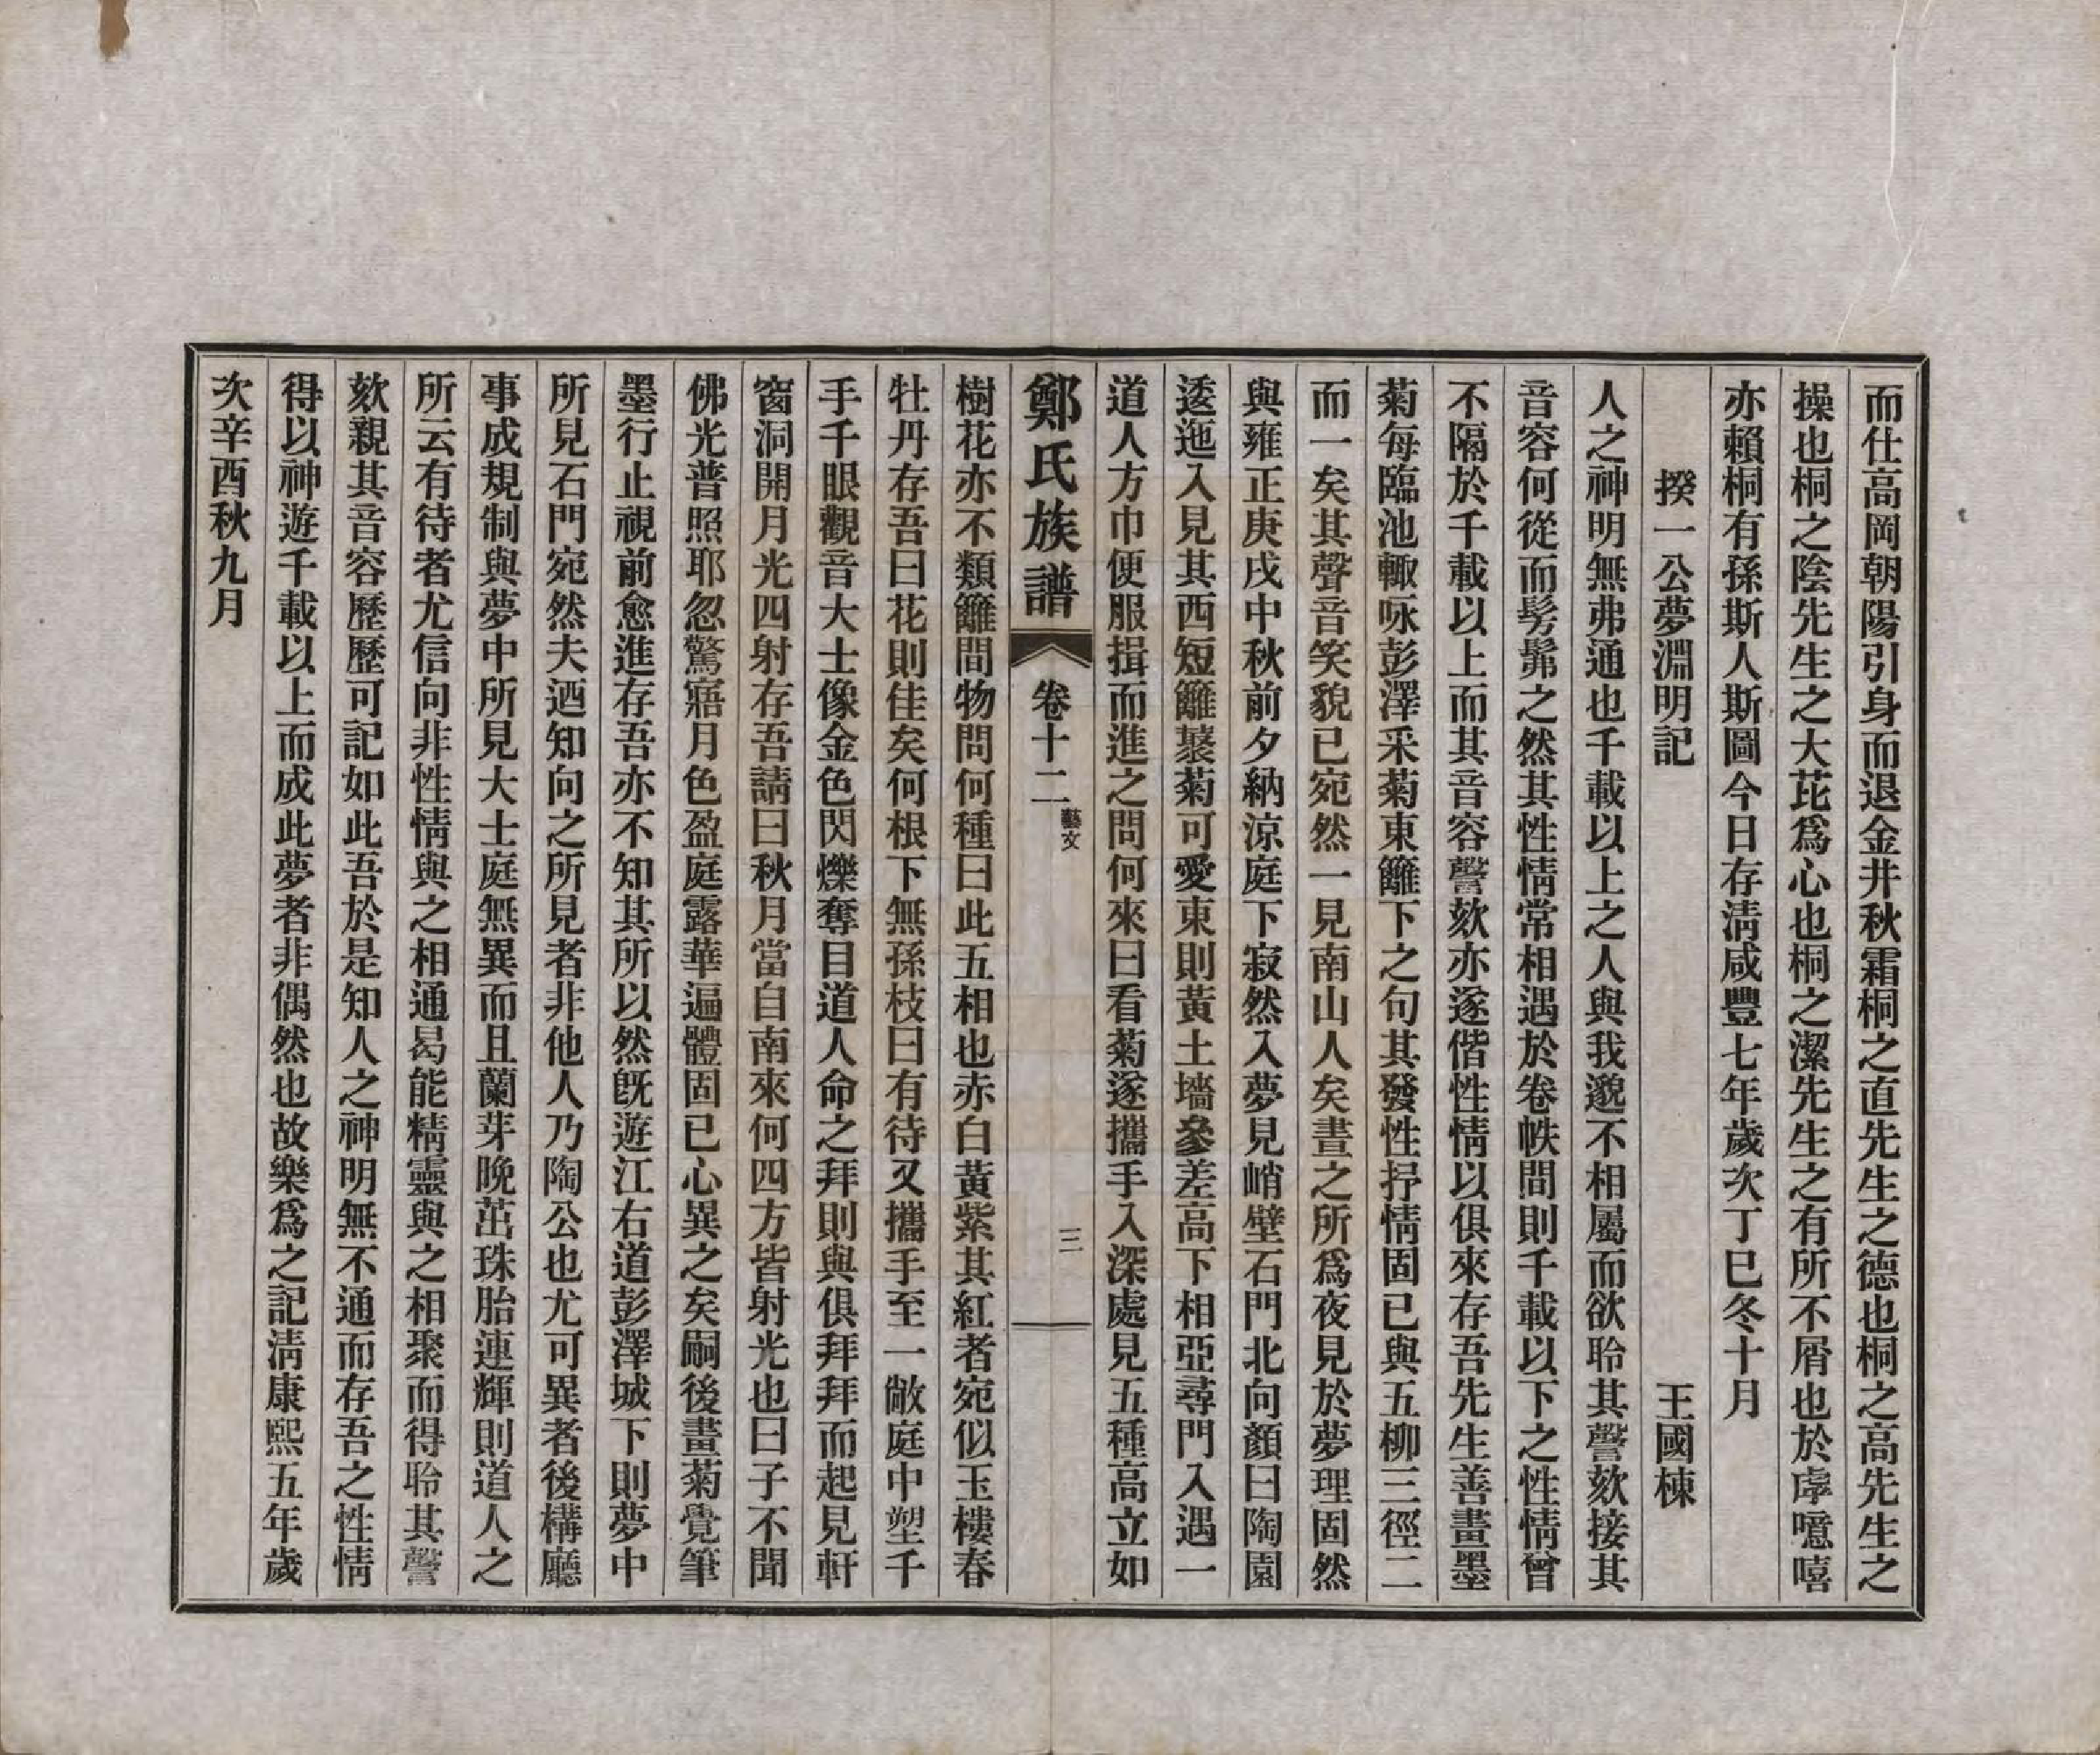 而仕高岡朝陽引身而退金井秋霜桐之直先生之德也桐之高先生之
操也桐之陰先生之大芘爲心也桐之潔先生之有所不屑也於虖噫嘻
亦賴桐有孫斯人斯圖今日存淸咸豐七年歲次丁巳冬十月
揆一公夢淵明記　王國棟
人之神明無弗通也千載以上之人與我邈不相屬而欲聆其謦欬接其
音容何從而髣髴之然其性情常相遇於卷帙間則千載以下之性情曾
不隔於千載以上而其音容謦欬亦遂偕性情以俱來存吾先生善畫墨
菊每臨池輙咏彭澤采菊東籬下之句其發性抒情固已與五柳三徑二
而一矣其聲音笑貌已宛然一見南山人矣晝之所爲夜見於夢理固然
與雍正庚戌中秋前夕納涼庭下寂然入夢見峭壁石門北向顏曰陶園
逶迤入見其西短籬蓑菊可愛東則黃土墻參差高下相亞尋門入遇一
道人方巾便服揖而進之問何來曰看菊遂攜手入深處見五種高立如
鄭氏族譜　卷十二　藝文　三
樹花亦不類籬間物問何種曰此五相也赤白黃紫其紅者宛似玉樓春
牡丹存吾曰花則佳矣何根下無孫枝曰有待又攜手至一敝庭中塑千
手千眼觀音大士像金色閃爍奪目道人命之拜則與俱拜拜而起見軒
窗洞開月光四射存吾請曰秋月當自南來何四方皆射光也曰子不聞
佛光普照耶忽驚寤月色盈庭露華遍體固已心異之矣嗣後畫菊覺筆
墨行止視前愈進存吾亦不知其所以然旣遊江右道彭澤城下則夢中
所見石門宛然夫迺知向之所見者非他人乃陶公也尤可異者後構廳
事成規制與夢中所見大士庭無異而且蘭芽晚茁珠胎連輝則道人之
所云有待者尤信向非性情與之相通曷能精靈與之相聚而得聆其謦
欬親其音容歷歷可記如此吾於是知人之神明無不通而存吾之性情
得以神遊千載以上而成此夢者非偶然也故樂爲之記淸康熙五年歲
次辛酉秋九月